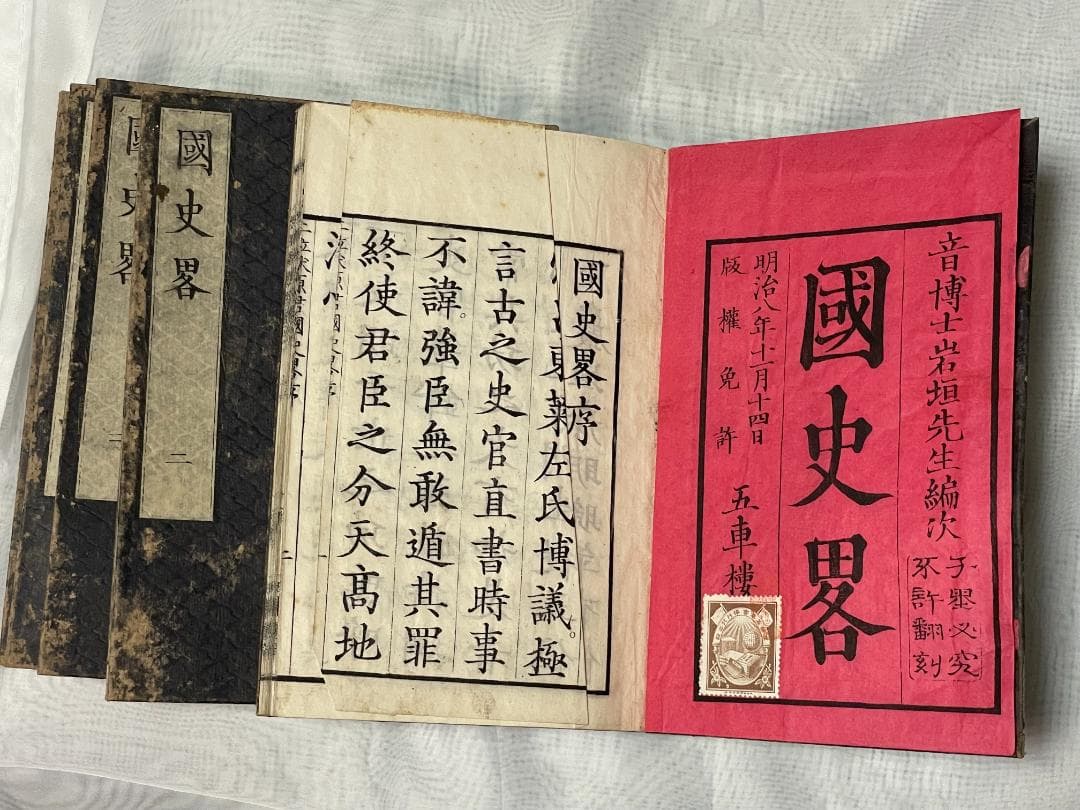 音博士岩垣先生編次
必究
不許翻刻
國史畧
明治八年十一月十四日
版權免許
五車樓
國史畧序
東萊左氏博議。極
言古之史官直書時事
不諱。強臣無敢遁其罪
終使君臣之分天高地
國史畧
二
國史畧